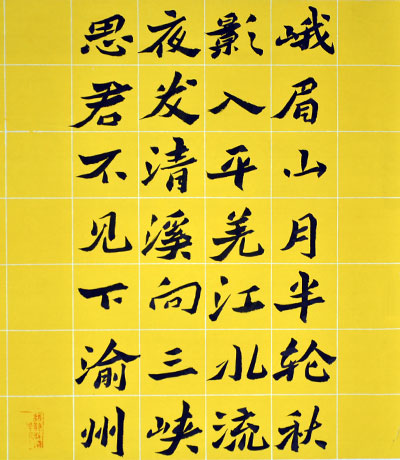 峨眉山月半轮秋
影入平羌江水流
夜发清溪向三峡
思君不见下渝州